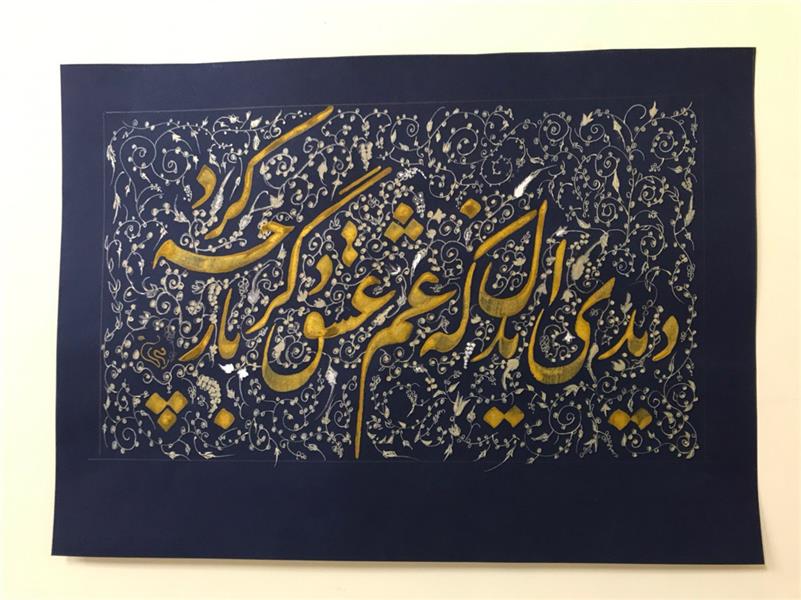 دیدی ایدل که غم عشق دگر بار چه کرد